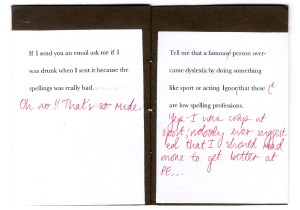 If I send you an email ask me if I
was drunk when I sent it because the
spellings was really bad.
Oh no!! That's so rude.
Tell me that a famous person over-
came dyslexia by doing something
like sport or acting. Ignor that these
are low spelling professions.
Yep - I was crap at
sport; nobody ever suggest
ed that I should read
more to get better at
PE...